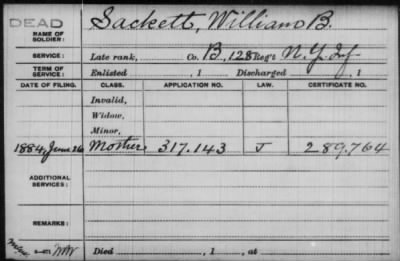 DEAD
NAME OF SOLDIER: Sackett, William B.
SERVICE: Late rank, Co. B, 128 Reg't N.Y. Inf
TERM OF SERVICE: Enlisted , 1 Discharged , 1
DATE OF FILING. CLASS. APPLICATION NO. LAW. CERTIFICATE NO.
Invalid,
Widow,
Minor,
1884, June 26 Mother 317.143 J 289.764
ADDITIONAL SERVICES:
REMARKS:
Died , 1 , at